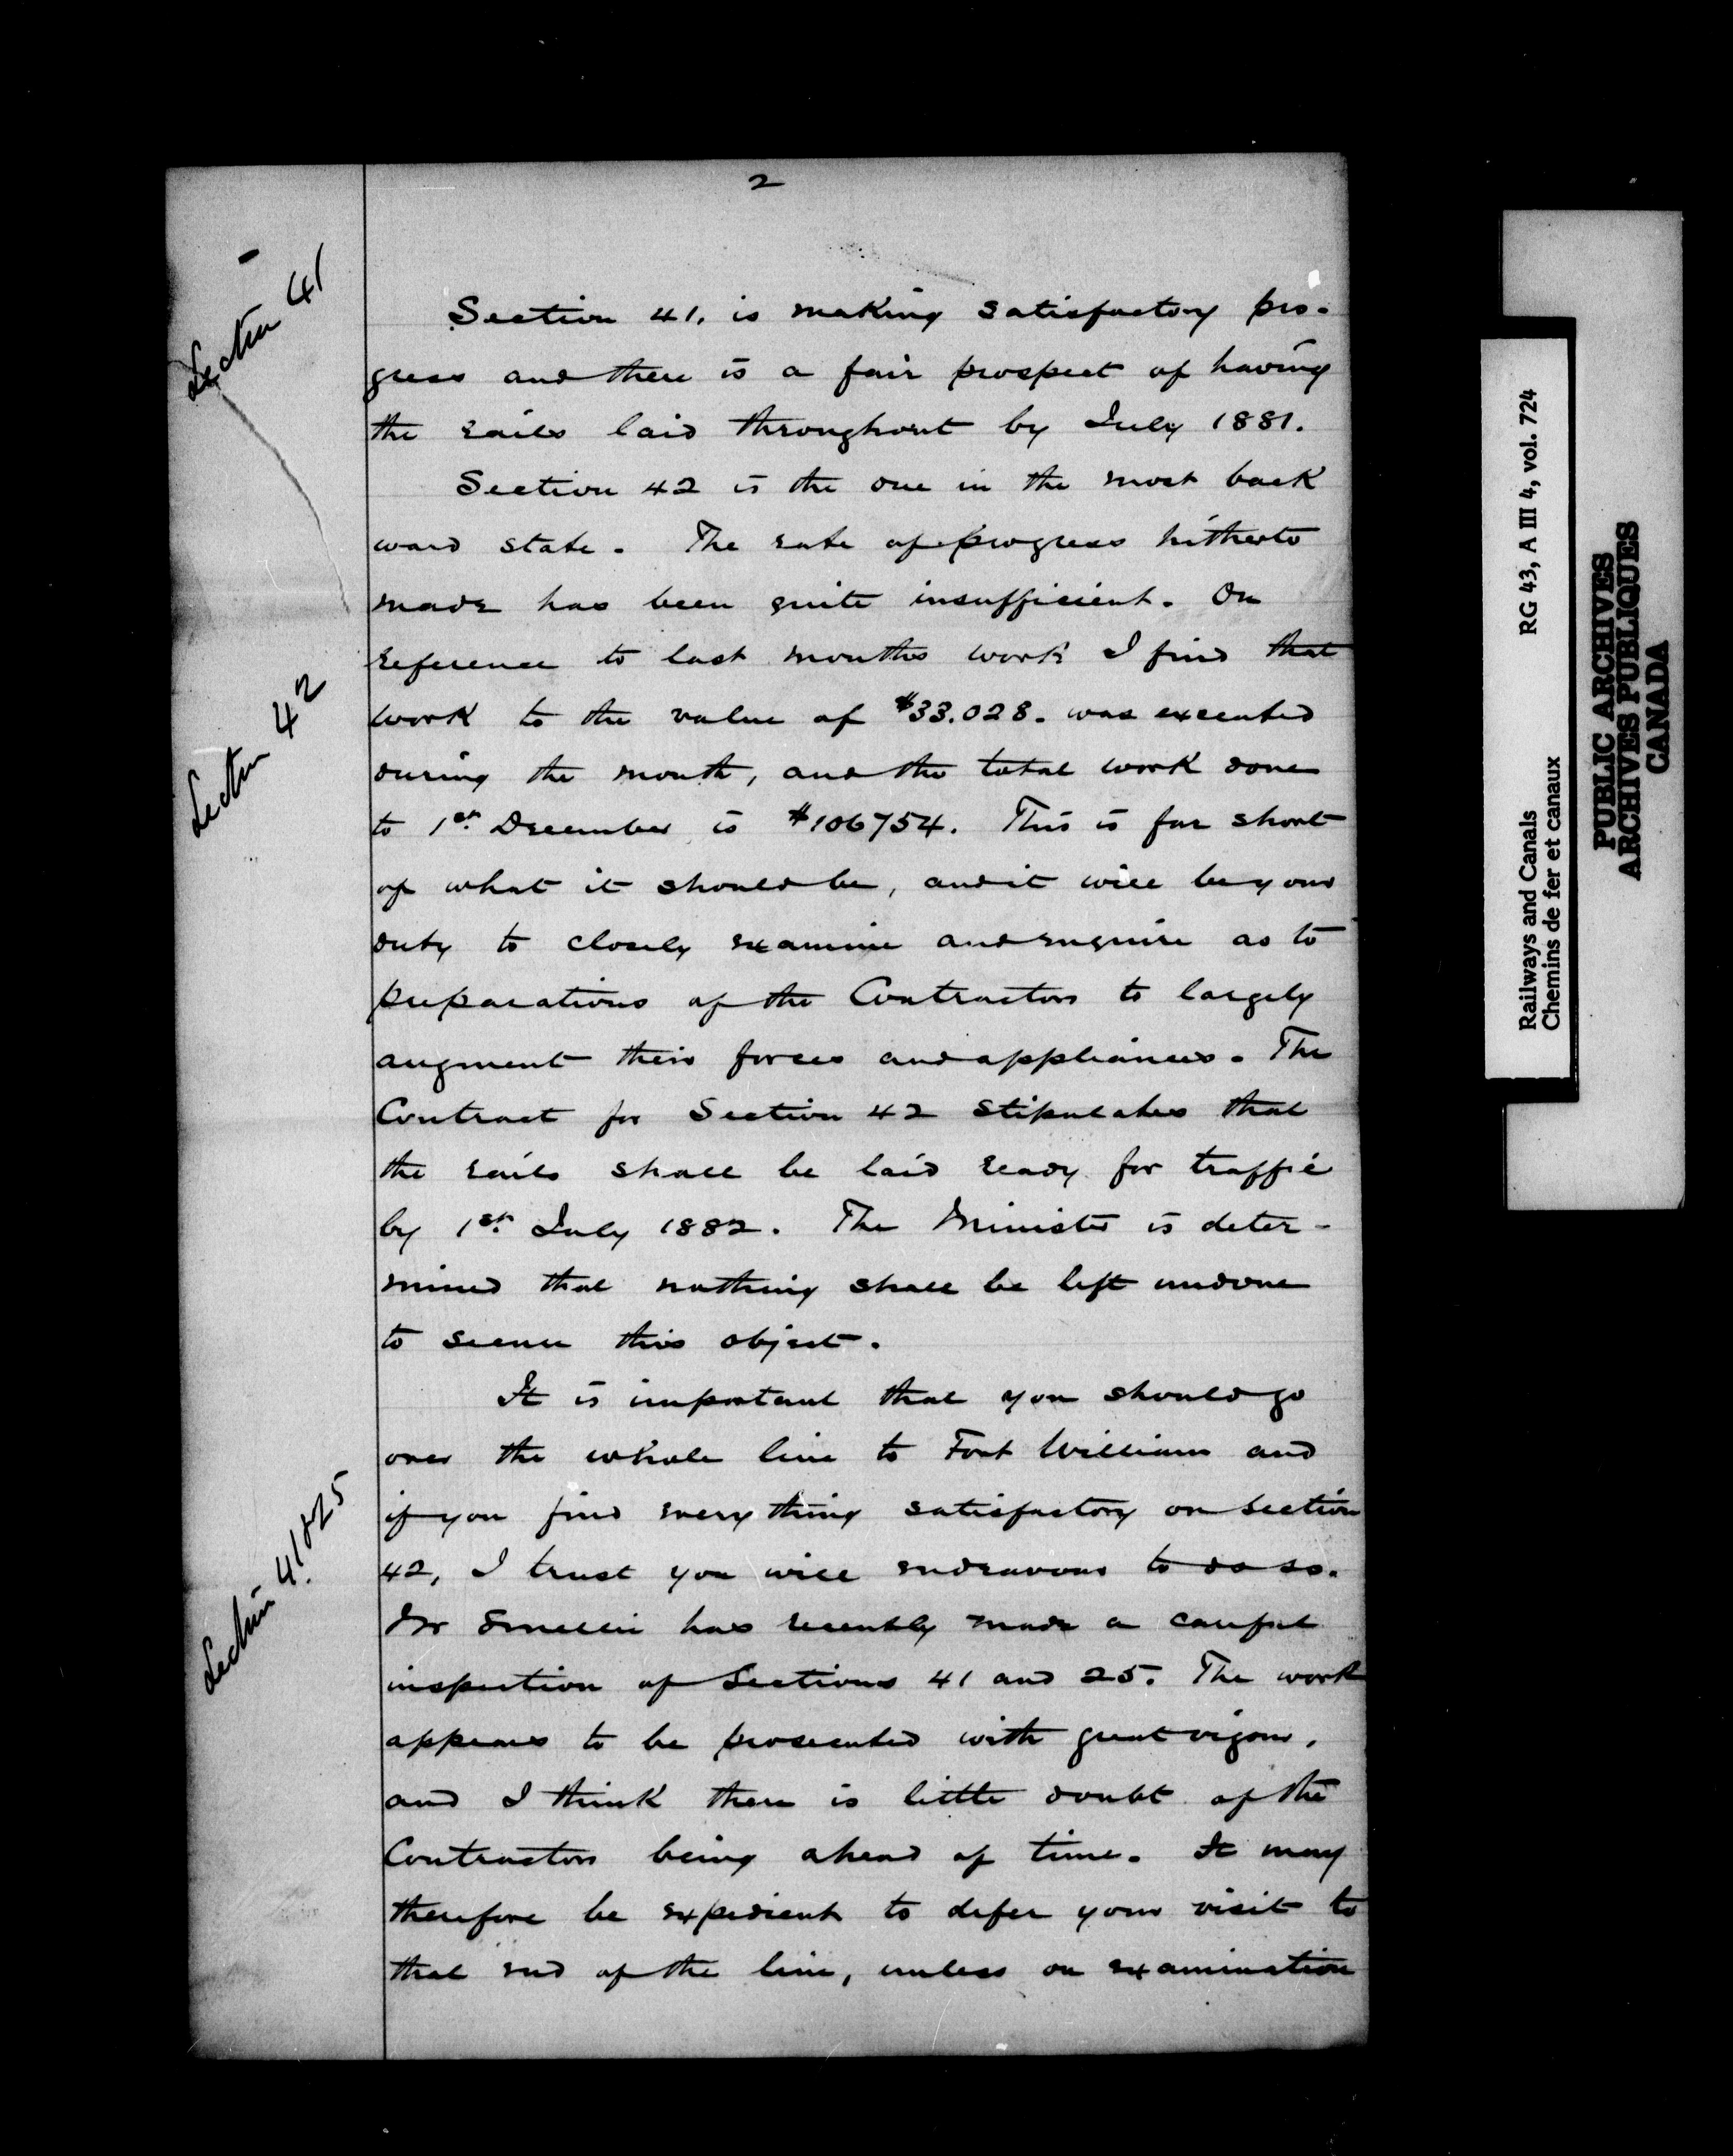 2
Section 41
Section 41. is making satisfactory pro-
gress and there is a fair prospect of having
the rails laid throughout by July 1881.
Section 42
Section 42 is the one in the most back
ward state. The rate of progress hitherto
made has been quite insufficient. On
reference to last months work I find that
work to the value of $33.028. was executed
during the month, and the total work done
to 1st. December is $106754. This is far short
of what it should be, and it will be your
duty to closely examine and enquire as to
preparations of the Contractors to largely
augment their forces and appliances. The
Contract for Section 42 stipulates that
the rails shall be laid ready for traffic
by 1st. July 1882. The Minister is deter-
mined that nothing shall be left undone
to secure this object.
Section 41 & 25
It is important that you should go
over the whole line to Fort William and
if you find every thing satisfactory on Section
42, I trust you will endeavour to do so.
Mr Smellie has recently made a careful
inspection of Sections 41 and 25. The work
appears to be prosecuted with great vigour,
and I think there is little doubt of the
Contractors being ahead of time. It may
therefore be expedient to defer your visit to
that end of the line, unless on examination
Railways and Canals RG 43, A III 4, vol. 724
Chemins de fer et canaux
PUBLIC ARCHIVES
ARCHIVES PUBLIQUES
CANADA